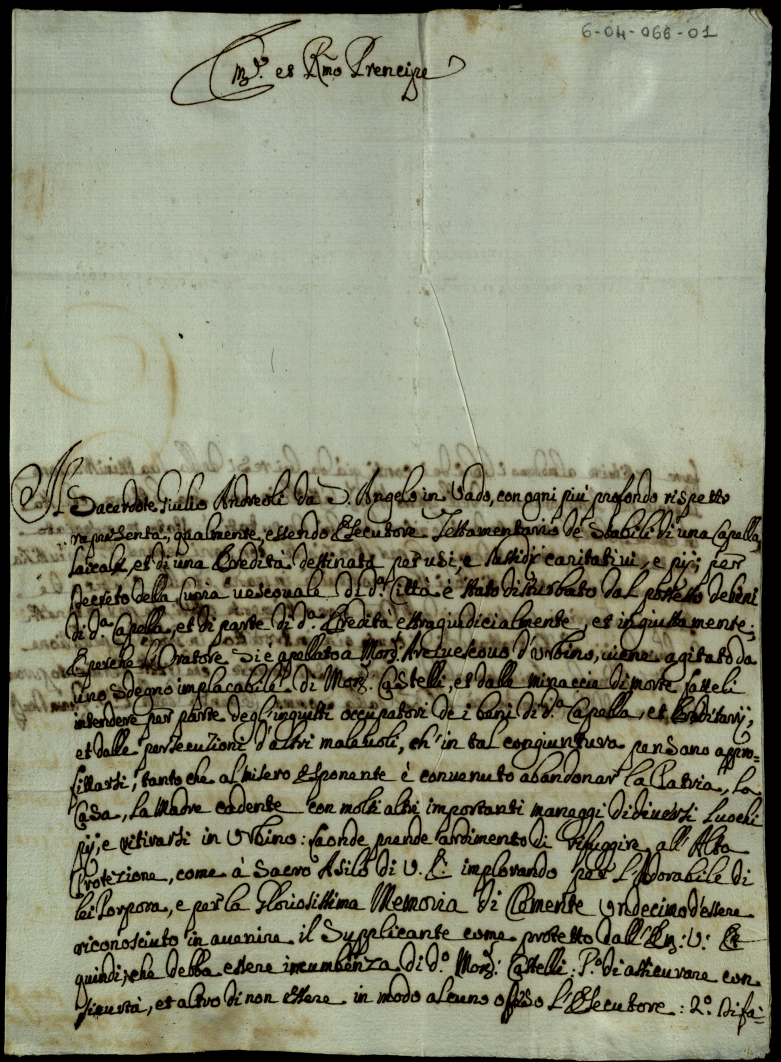 6-04-066-01
Em.o et R.mo Prencipe
Il Sacerdote Giulio Andreoli da S. Angelo in Vado, con ogni più profondo rispetto
rapresenta; qualmente, essendo Esecutore Testamentario de Stabili di una Capella
laicale, et di una Eredità destinata per usi, e sussidi caritativi, e pij; per
Decreto della Curia vescouale di d.a Città è stato disturbato dal possesso de beni
di d.a Capella, et di parte di d.a Eredità estragiudicialmente, et ingiustamente;
E perche l'Oratore si è apellato a Mons: Arciuescouo d'Urbino, viene agitato da
uno sdegno implacabile di Mons: Castelli, et dalle minaccie di morte fatteli
intendere per parte degl'ingiusti occupatori de i beni di d.a Capella, et Ereditarij;
et dalle persecuzioni d'altri maleuoli, ch'in tal congiuntura pensano appro=
fittarsi, tanto che al misero Esponente è conuenuto abandonar la Patria, la
Casa, la Madre cadente con molti altri importanti maneggi di diuersi Luochi
pij, e ritirarsi in Urbino: laonde prende ardimento di rifuggire all'Alta
Protezione, come à Sacro Asilo di V. E: implorando per l'Adorabile di
lei Porpora, e per la Gloriosissima Memoria di Clemente Undecimo d'essere
riconosciuto in auenire il Supplicante come protetto dall'Em: V: Et
quindi, che debba essere incumbenza di d.o Mons: Castelli: P.o di assicurare con
sicurtà, et altro di non essere in modo alcuno offeso l'Esecutore: 2.o Di fa=